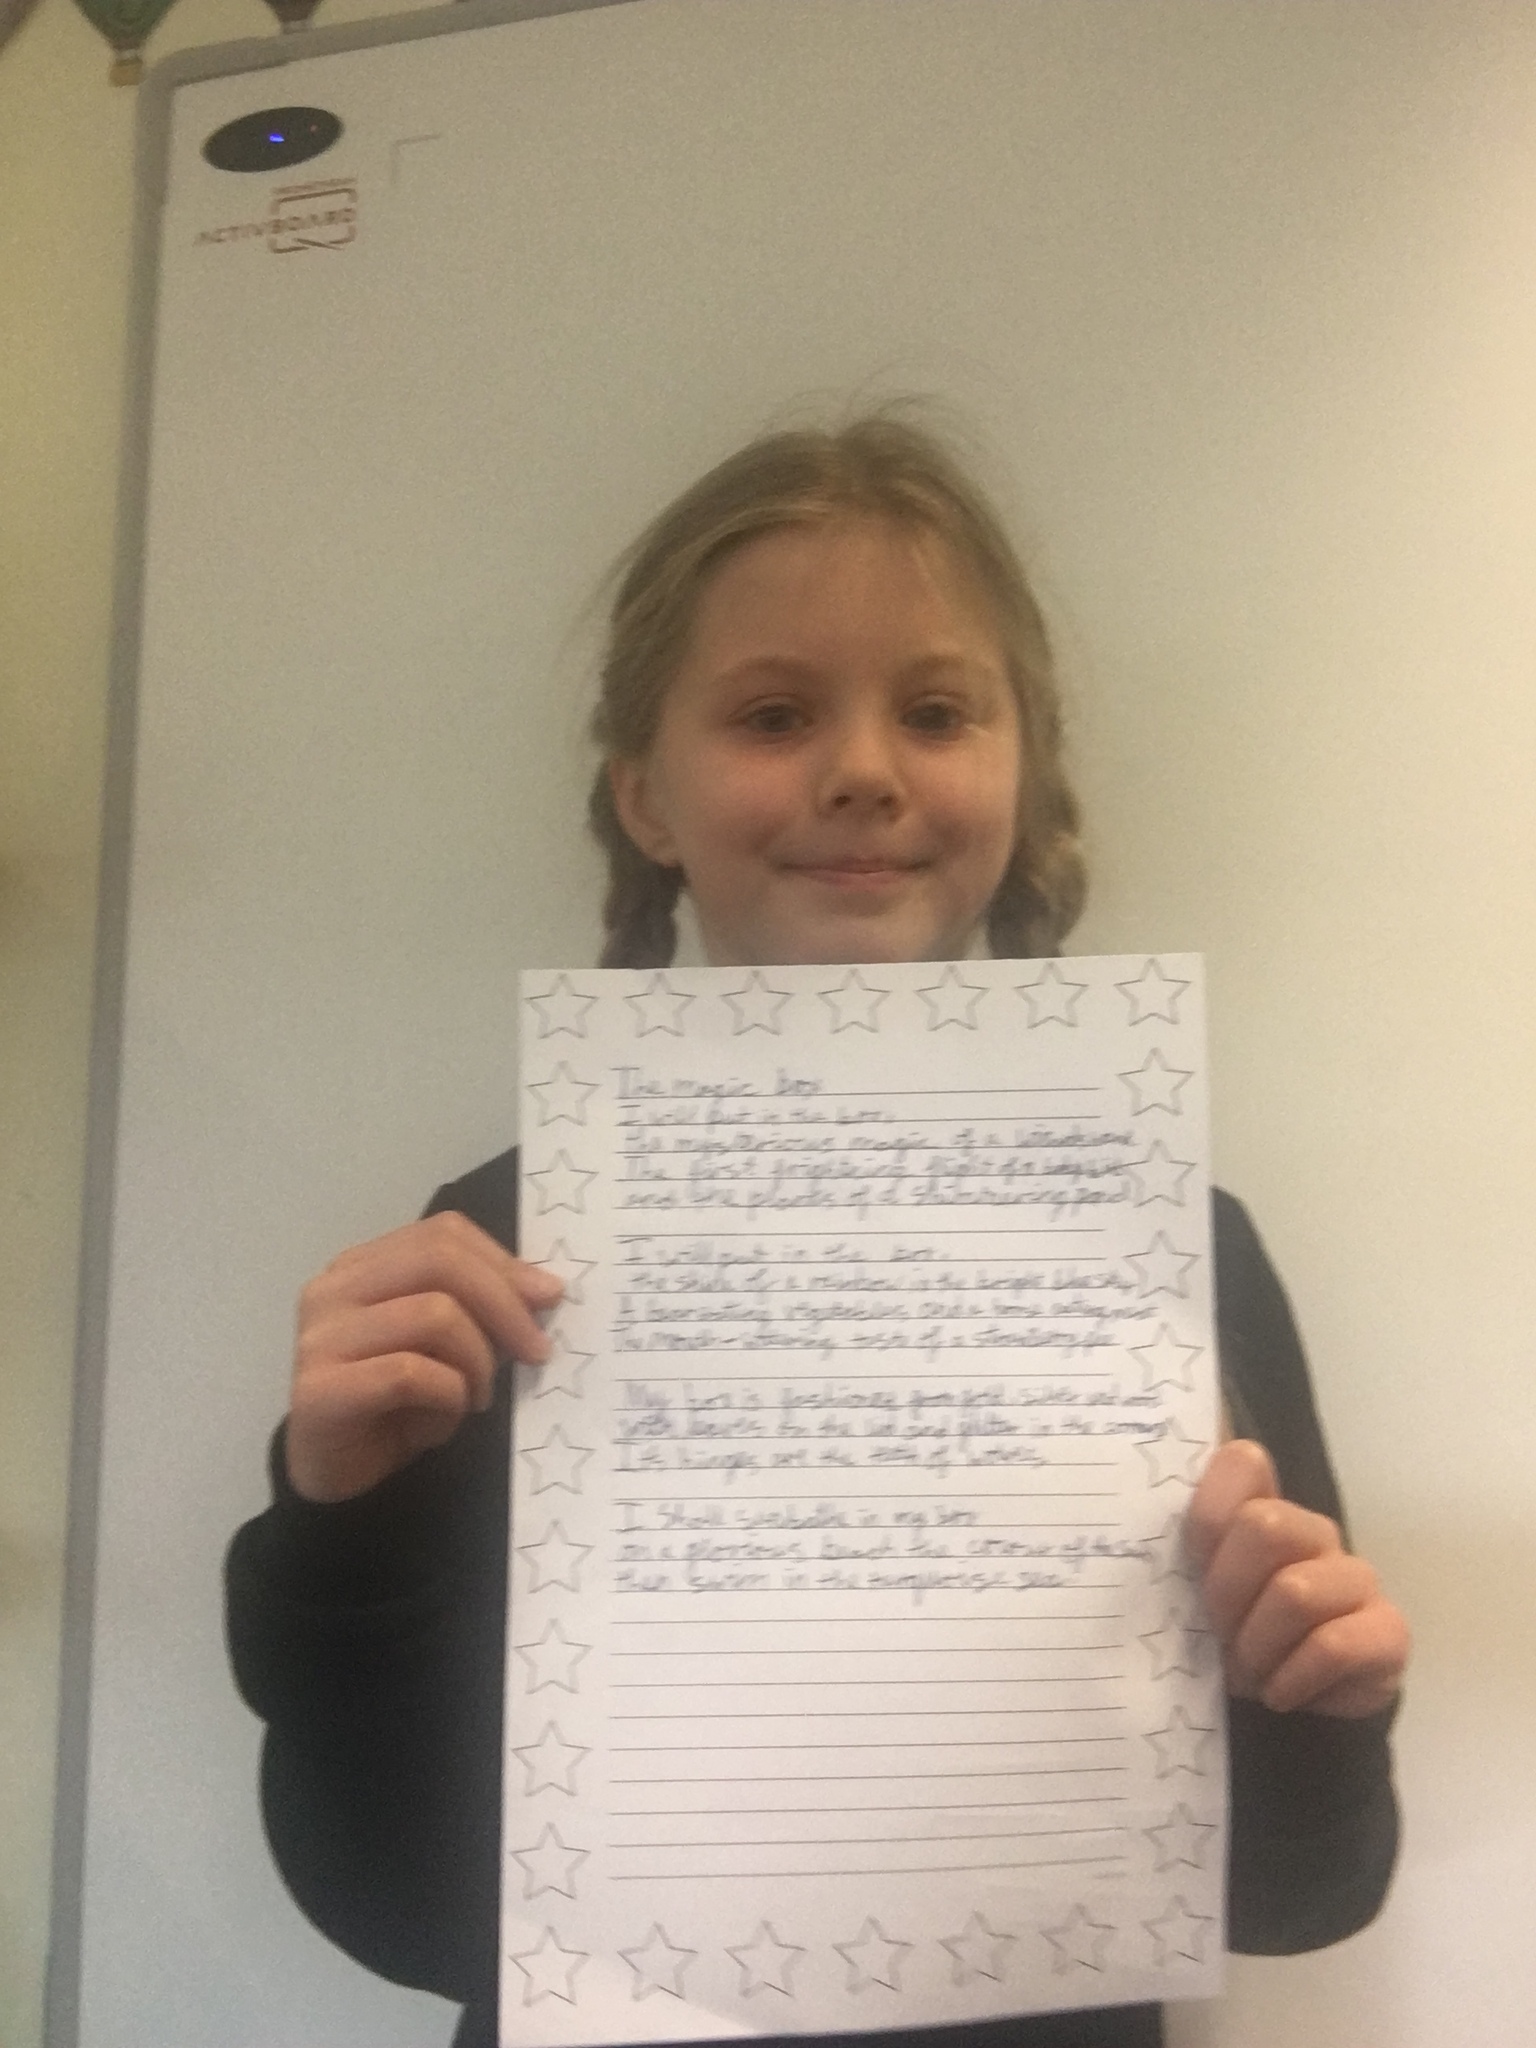 ACTIVBOARD
The magic box
I will put in the box.
the mysterious magic of a
The first frightning flight of a
and the plants of a shimmering pond
I will put in the box.
the shine of a rainbow in the bright blue sky
A vegetables and a horse eating
The mouth-watering taste of a strawberry
My box is fashioned from gold silver and
with on the lid and glitter in the corners
Its hinges are the teeth of wolves
I shall sunbathe in my box
on a glorious beach the colour of the sun
then swim in the turquoise sea